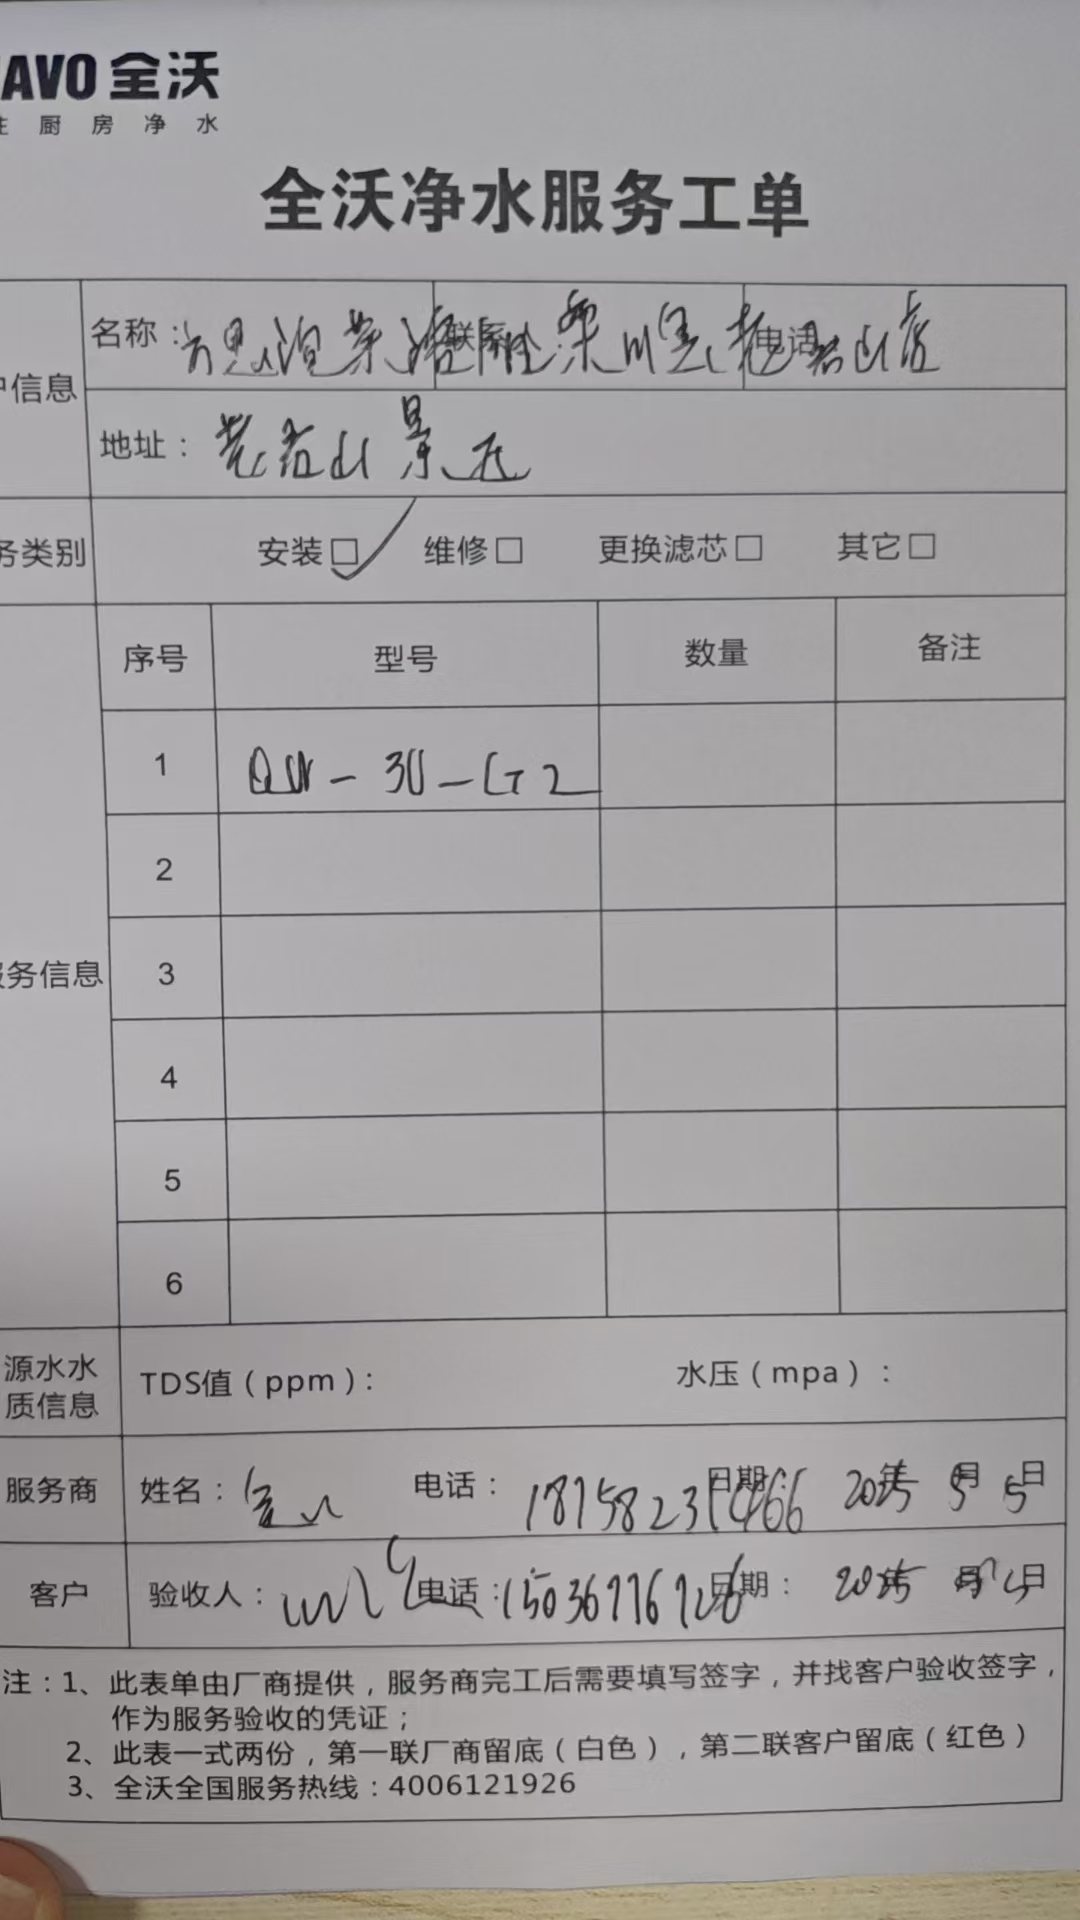 AVO 全沃
厨房净水
全沃净水服务工单
名称： 联系 电话 老君山店
信息
地址：老君山景区
务类别 安装□✓ 维修□ 更换滤芯□ 其它□
序号 型号 数量 备注
1 QW-3U-G2
2
3
服务信息
4
5
6
源水水质信息 TDS值（ppm）： 水压（mpa）：
服务商 姓名： 电话：18758231466 日期： 2025年 5月 5日
客户 验收人： 电话： 日期： 2025年 月 5日
注：1、此表单由厂商提供，服务商完工后需要填写签字，并找客户验收签字，
作为服务验收的凭证；
2、此表一式两份，第一联厂商留底（白色），第二联客户留底（红色）
3、全沃全国服务热线：4006121926